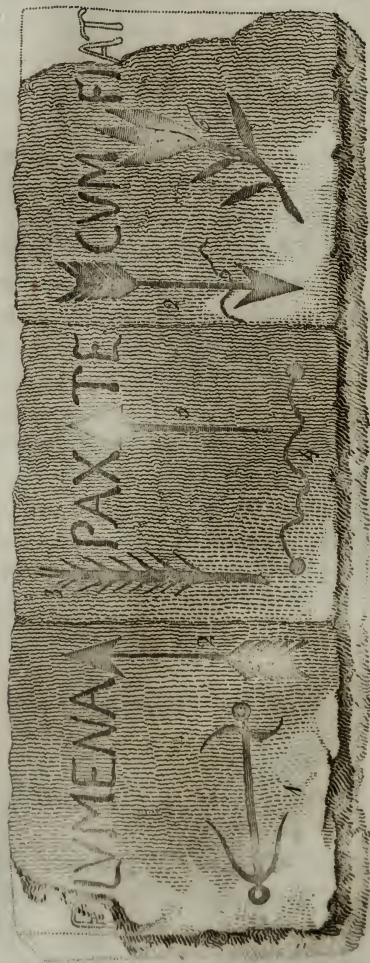 LVMENA PAX TE CVM FIAT
3
2
1
4